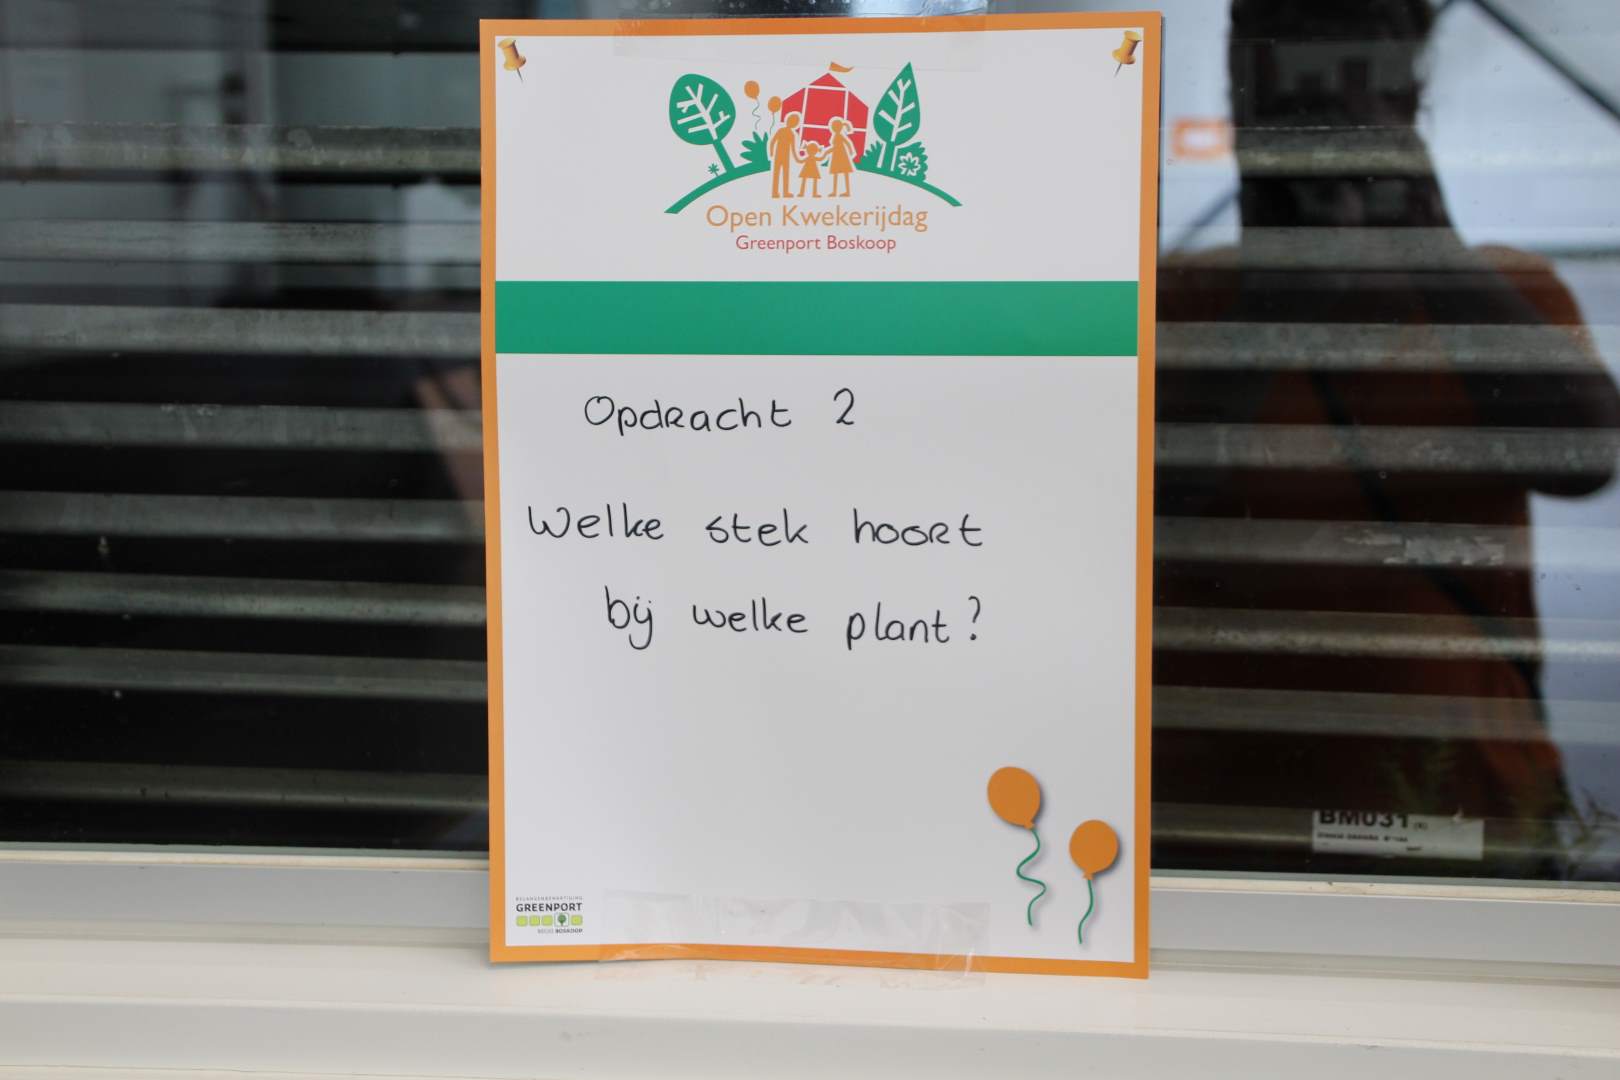 Open Kwekerijdag
Greenport Boskoop
Opdracht 2
Welke stek hoort
bij welke plant?
BELANGENBEHARTIGING
GREENPORT
REGIO BOSKOOP
BM031